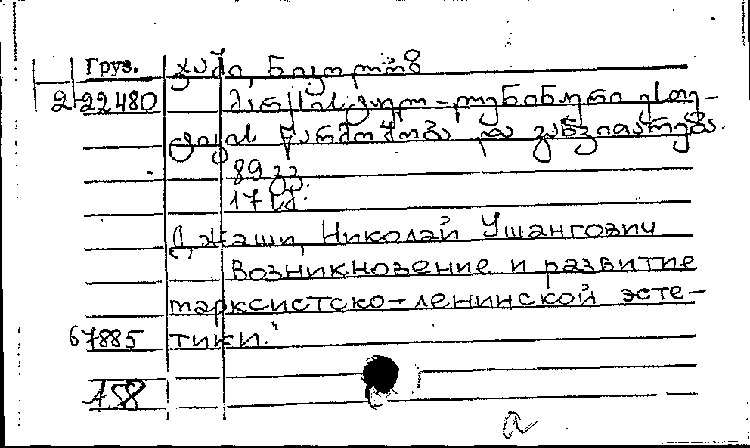 Груз. ჯაში, ნიკოლოზ
2-22480 მარქსისტულ-ლენინური ესთე-
ტიკის წარმოშობა და განვითარება.
89 გვ.
17 სმ.
Джаши, Николай Ушангович
Возникновение и развитие
марксистско-ленинской эсте-
67885 тики."
158
a